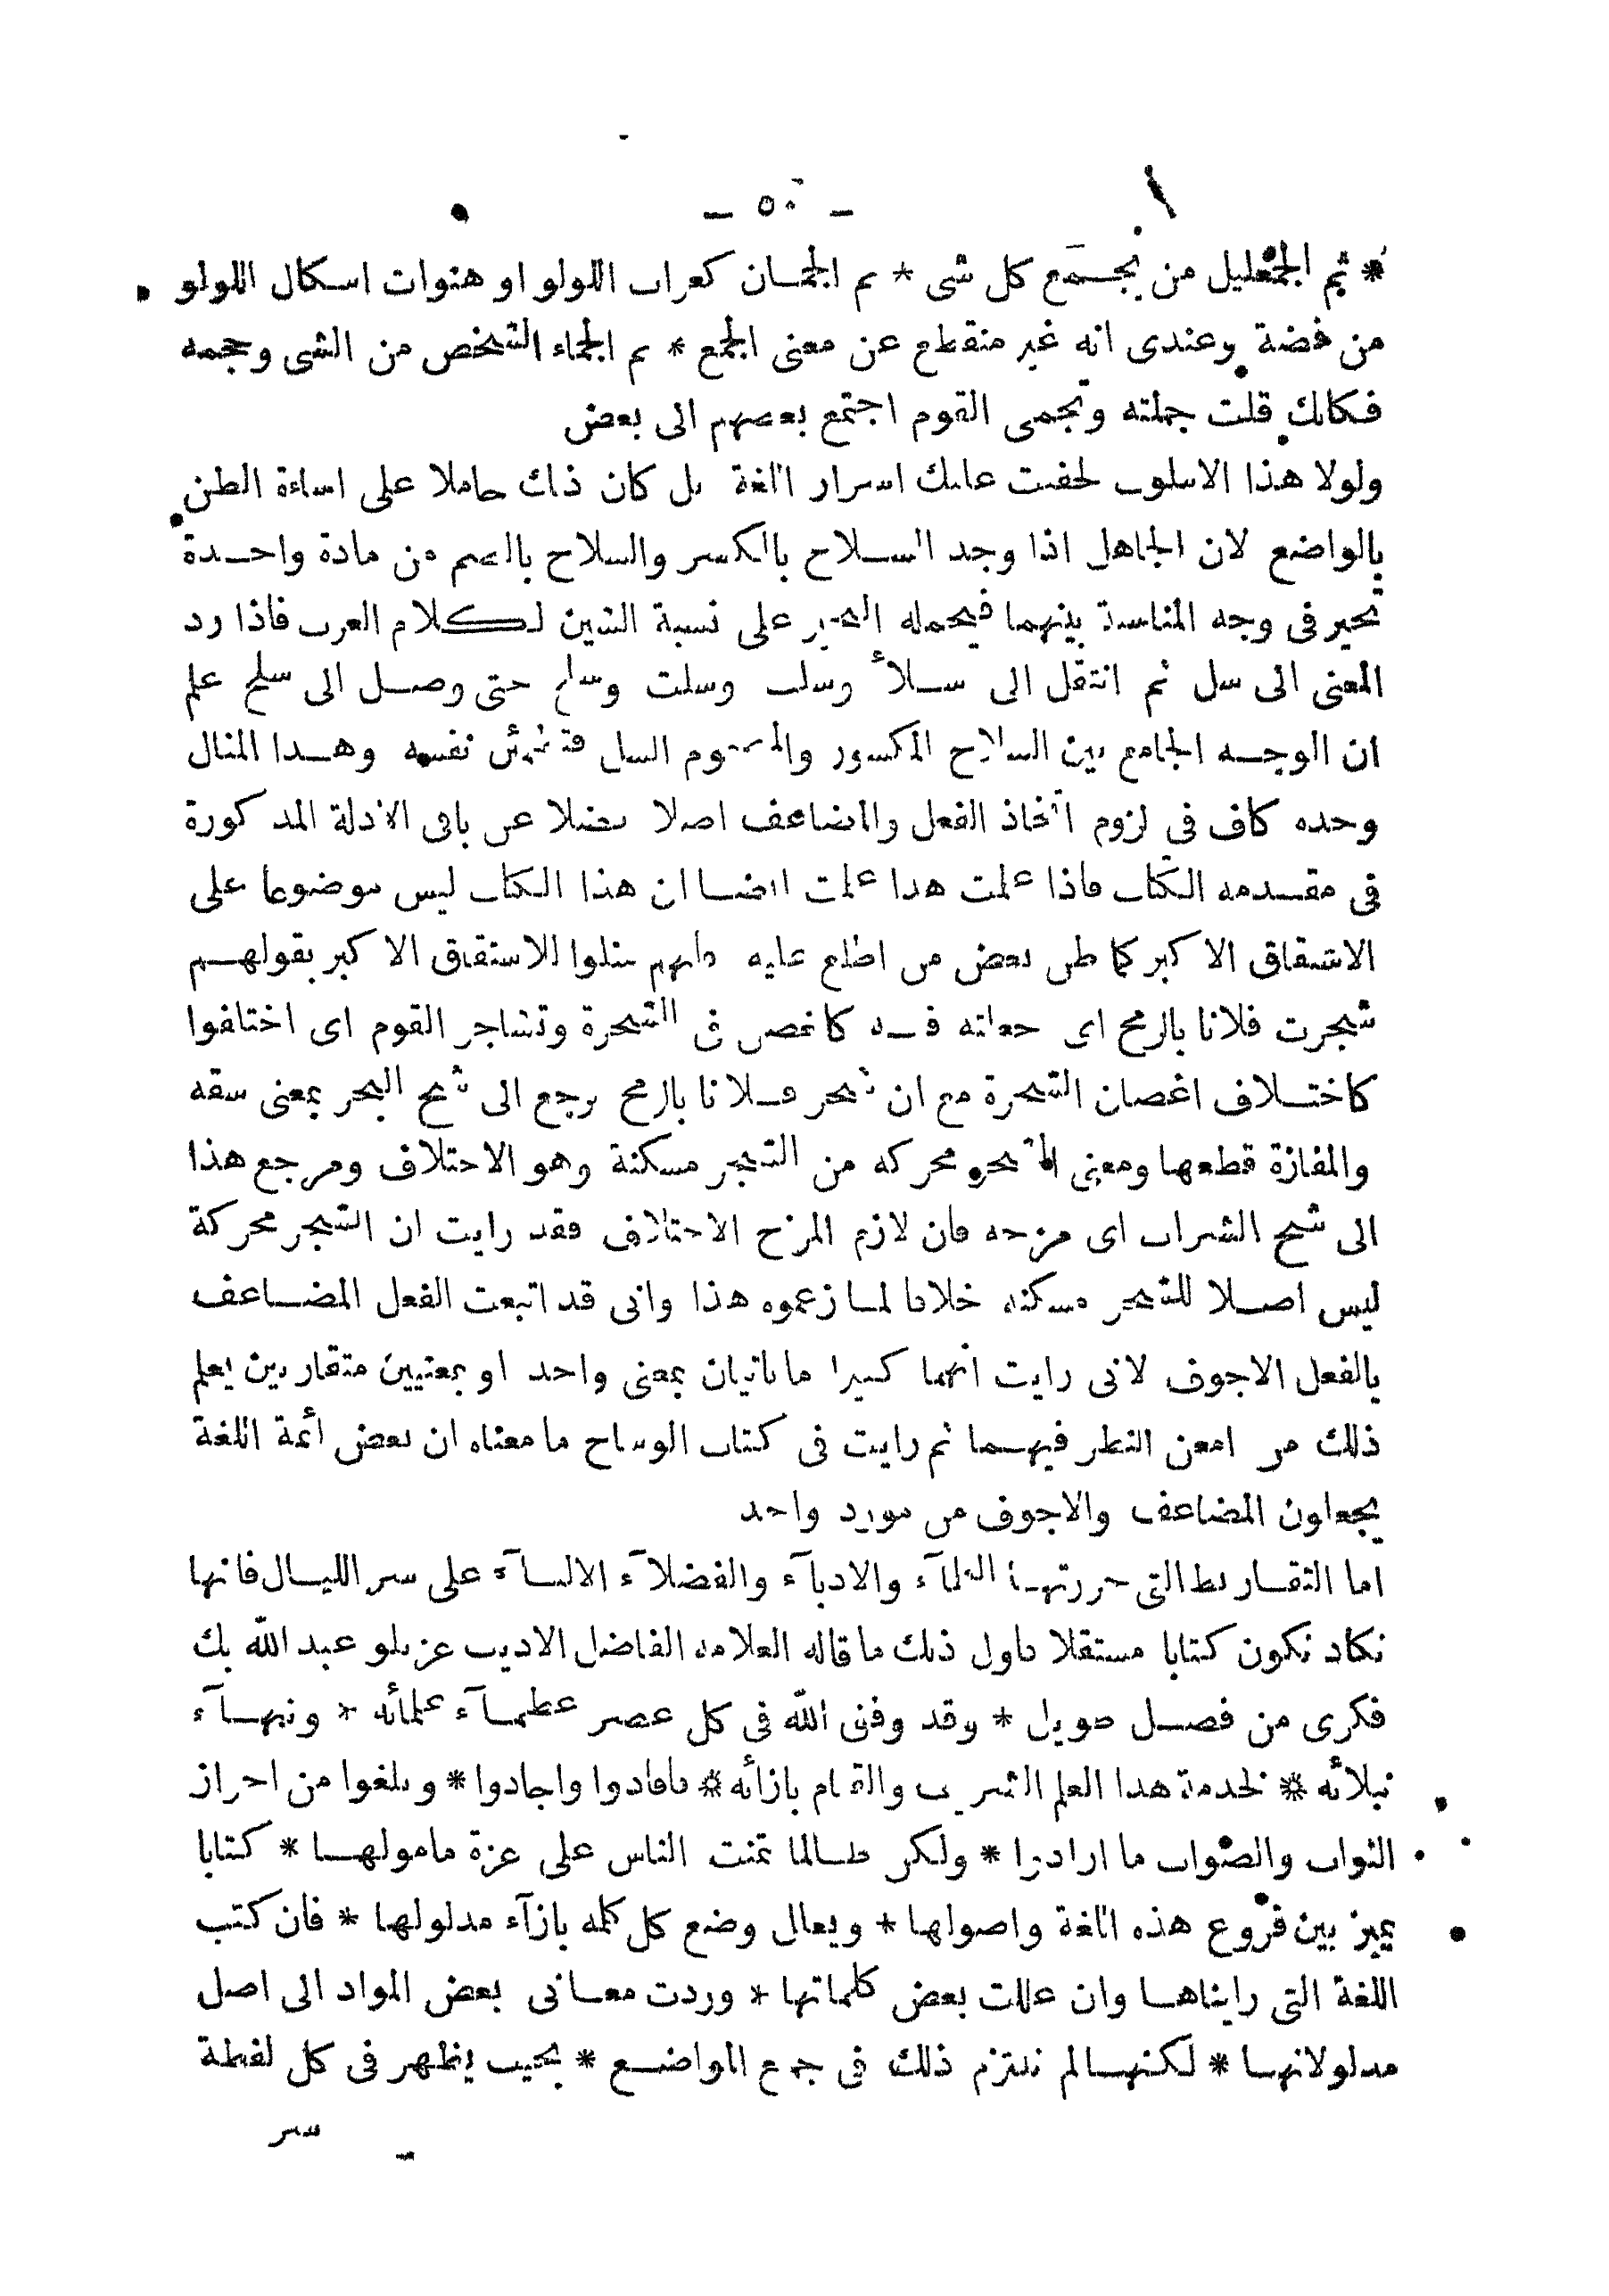 - ٥٠ -
* ثم الجمعليل من يجمع كل شى * ثم الجمان كغراب اللولو او هنوات اسكال اللولو
من فضة وعندى انه غير منقطع عن معنى الجمع * ثم الجماء الشخص من الشى وحجمه
فكانك قلت جملته وتجمى القوم اجتمع بعضهم الى بعض
ولولا هذا الاسلوب لخفيت عليك اسرار اللغة بل كان ذلك حاملا على اساءة الظن
بالواضع لان الجاهل اذا وجد السلاح بالكسر والسلاح بالضم من مادة واحدة
تحير فى وجه المناسبة بينهما فيحمله التحير على نسبة الشين لكلام العرب فاذا رد
المعنى الى سل ثم انتقل الى سلأ وسلب وسلت وسلج حتى وصل الى سلح علم
ان الوجه الجامع بين السلاح المكسور والمضموم السل نفسه وهذا المثال
وحده كاف فى لزوم اتخاذ الفعل والمضاعف اصلا فضلا عن باقى الادلة المذكورة
فى مقدمه الكتاب فاذا علمت هذا علمت ايضا ان هذا الكتاب ليس موضوعا على
الاشتقاق الاكبر كما ظن بعض من اطلع عليه فانهم مثلوا للاشتقاق الاكبر بقولهم
شجرت فلانا بالرمح اى جعلته فيه كالغصن فى الشجرة وتشاجر القوم اى اختلفوا
كاختلاف اغصان الشجرة مع ان شجر فلانا بالرمح يرجع الى شج البحر بمعنى شقه
والمفازة قطعها ومعنى الشجر محركه من الشجر مسكنة وهو الاختلاف ومرجع هذا
الى شج الشراب اى مزجه فان لازم المزج الاختلاف فقد رايت ان الشجر محركة
ليس اصلا للشجر مسكنه خلافا لما زعموه هذا وانى قد اتبعت الفعل المضاعف
بالفعل الاجوف لانى رايت انهما كثيرا ما ياتيان بمعنى واحد او بمعنيين متقاربين يعلم
ذلك من امعن النظر فيهما ثم رايت فى كتاب الوشاح ما معناه ان بعض أئمة اللغة
يجعلون المضاعف والاجوف من مورد واحد
اما التقاريظ التى حررتها العلمآء والادبآء والفضلآء الالبآء على سر الليال فانها
تكاد تكون كتابا مستقلا فاول ذلك ما قاله العلامه الفاضل الاديب عزتلو عبد الله بك
فكرى من فصل طويل * وقد وفق الله فى كل عصر عظمآء علمائه * ونبهآء
نبلائه * لخدمة هذا العلم الشريف والقيام بازائه * فافادوا واجادوا * وبلغوا من احراز
الثواب والصواب ما ارادوا * ولكن طالما تمنت الناس على عزة مامولها * كتابا
يميز بين فروع هذه اللغة واصولها * ويعلل وضع كل كلمه بازآء مدلولها * فان كتب
اللغة التى رايناها وان عللت بعض كلماتها * وردت معانى بعض المواد الى اصل
مدلولاتها * لكنها لم تلتزم ذلك فى جميع المواضع * بحيث يظهر فى كل لفظة
سر